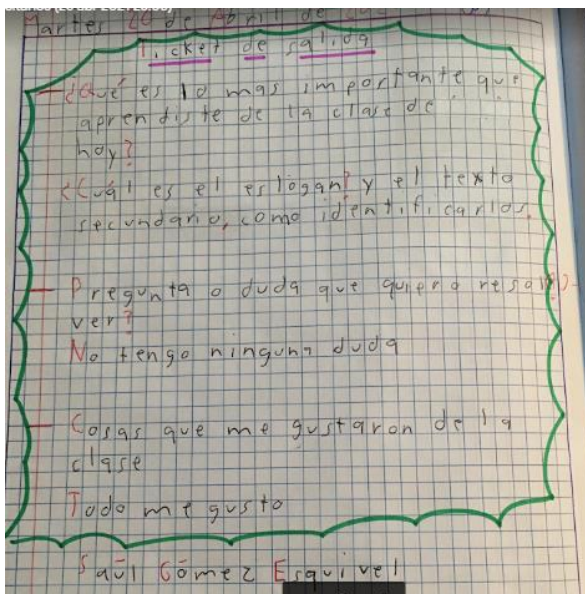 Martes 20 de Abril de
Ticket de salida
¿Qué es lo mas importante que
aprendiste de la clase de
hoy?
¿Cuál es el eslogan? y el texto
secundario, como identificarlos.
Pregunta o duda que quiero resol-
ver?
No tengo ninguna duda
Cosas que me gustaron de la
clase
Todo me gusto
Saúl Gómez Esquivel